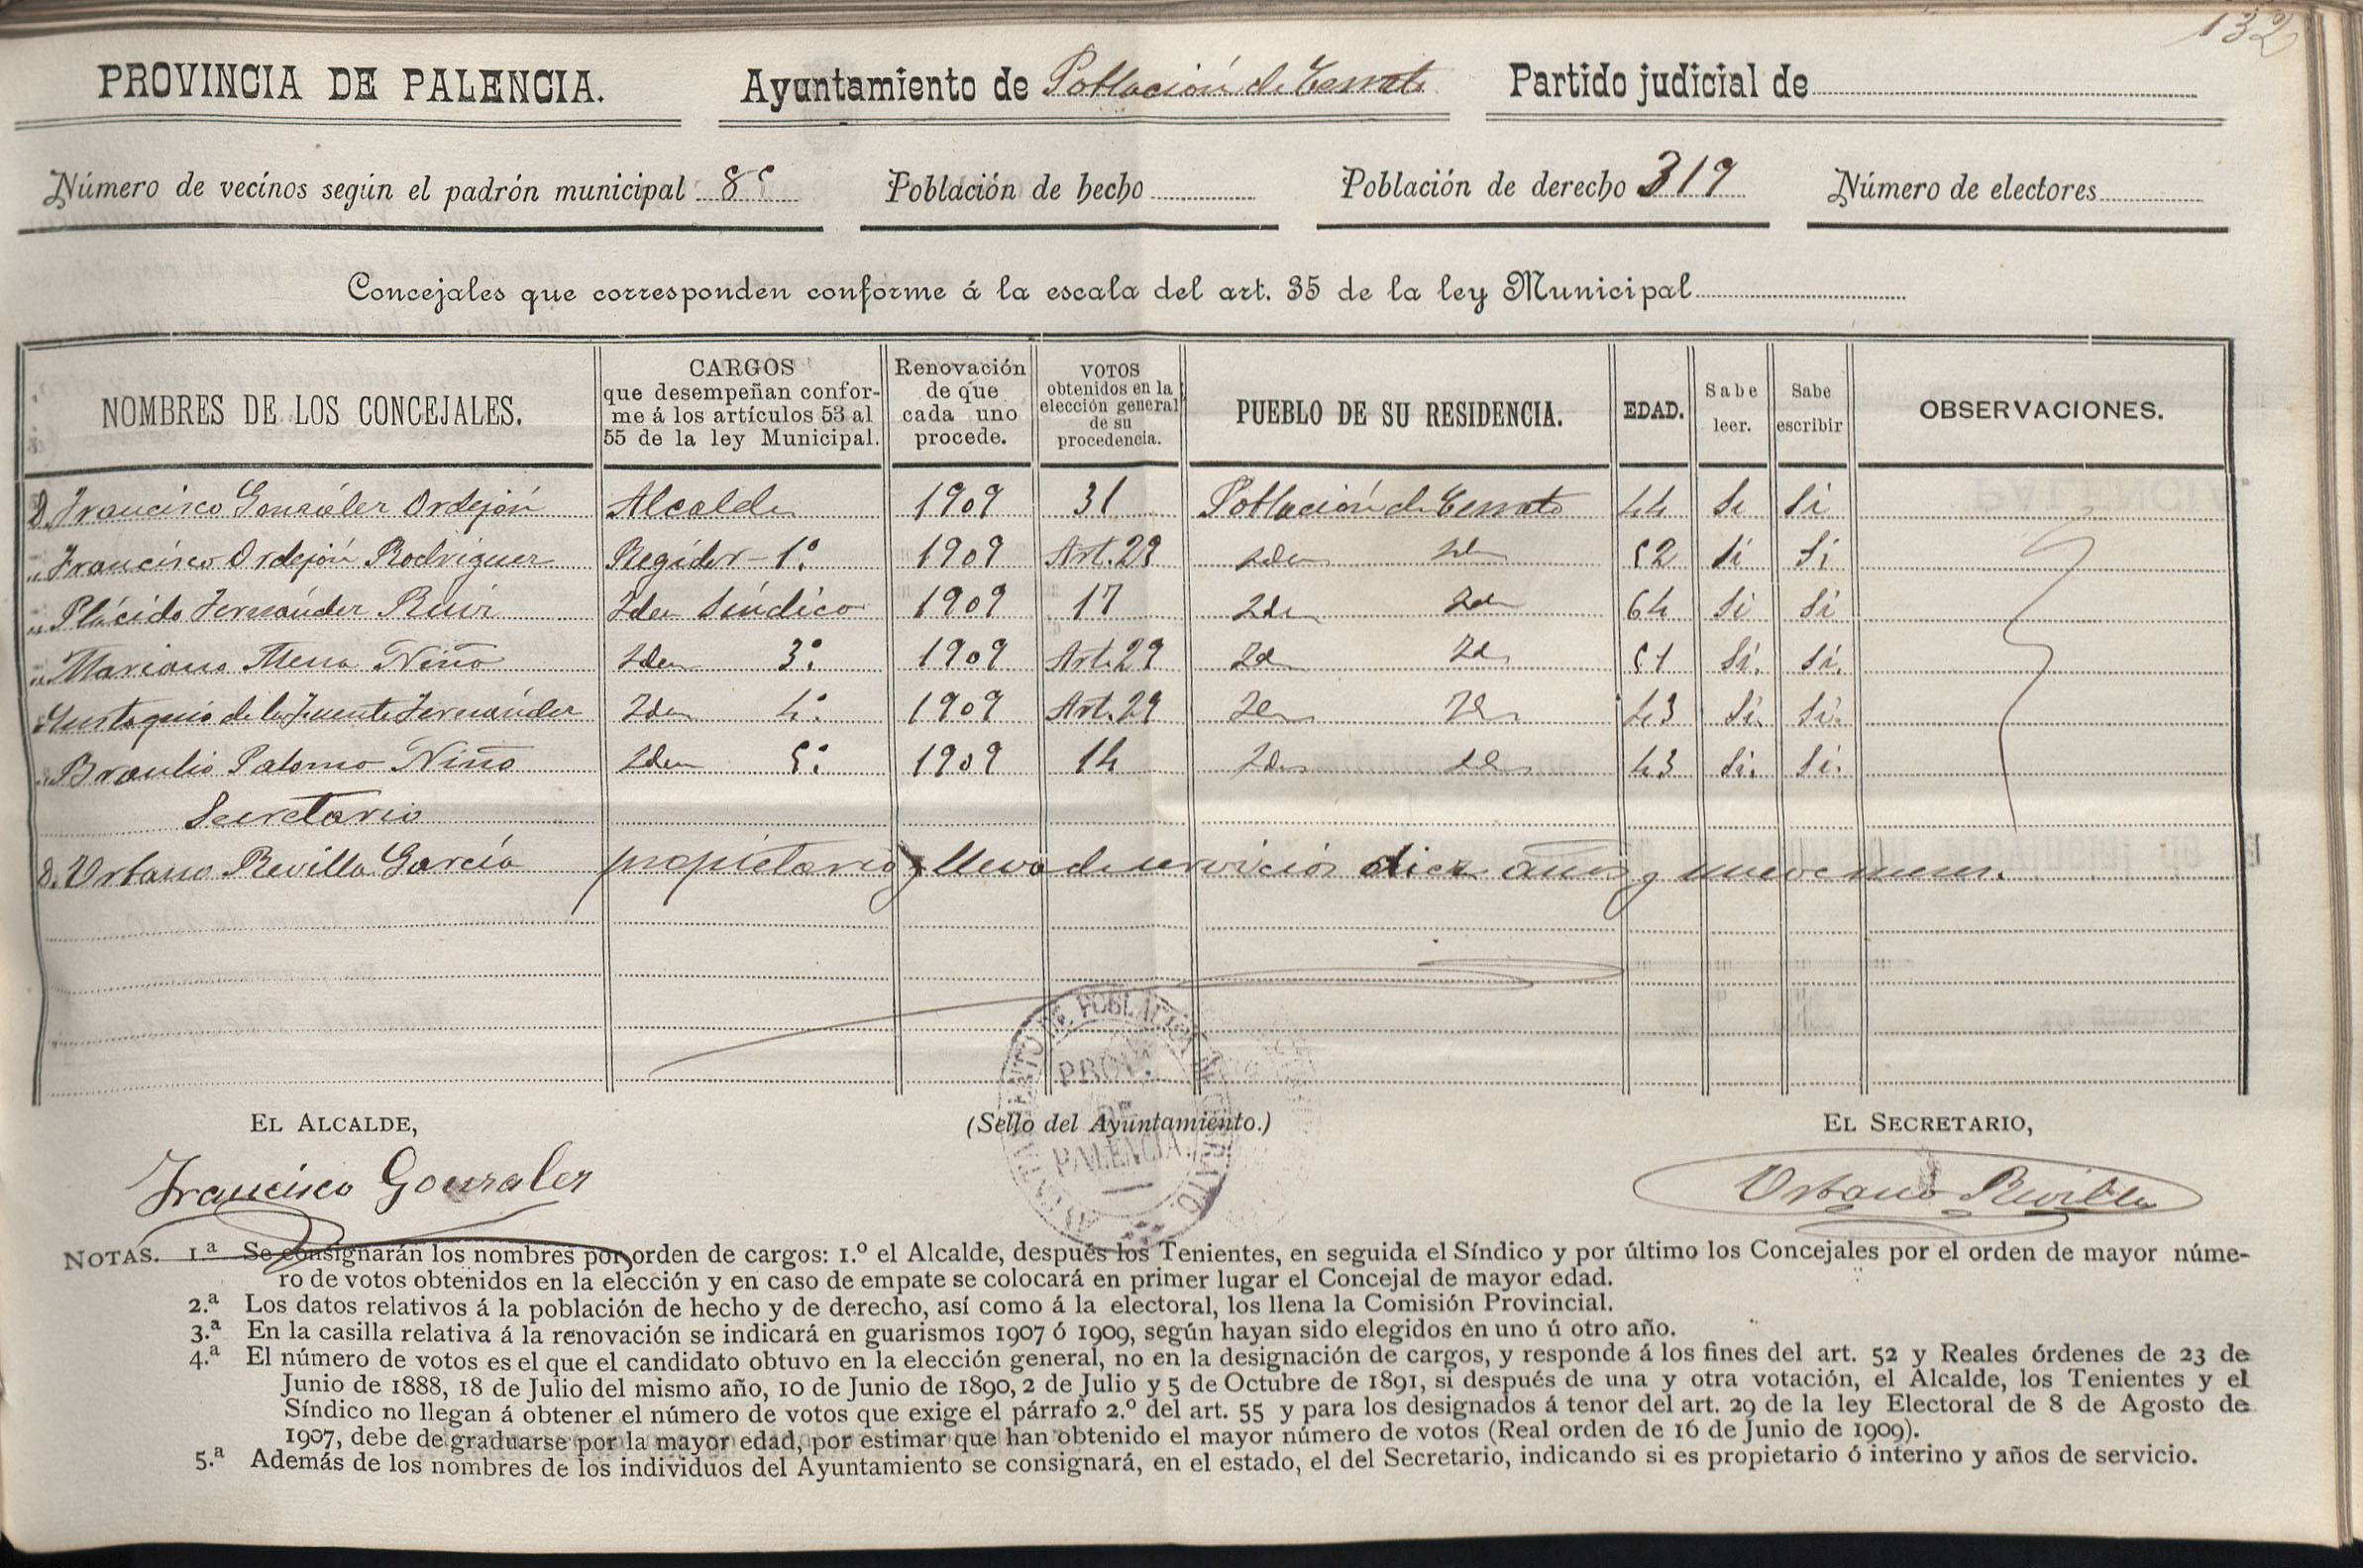 132
PROVINCIA DE PALENCIA. Ayuntamiento de Población de Cerrato Partido judicial de
Número de vecinos según el padrón municipal 85 Población de hecho Población de derecho 319 Número de electores
Concejales que corresponden conforme á la escala del art. 35 de la ley Municipal
NOMBRES DE LOS CONCEJALES. CARGOS que desempeñan confor- me á los artículos 53 al 55 de la ley Municipal. Renovación de que cada uno procede. VOTOS obtenidos en la elección general de su procedencia. PUEBLO DE SU RESIDENCIA. EDAD. Sabe leer. Sabe escribir OBSERVACIONES.
D. Francisco González Ordejón Alcalde 1909 31 Población de Cerrato 44 Si Si
" Francisco Ordejón Rodriguez Regidor - 1º 1909 Art. 29 Idem Idem 52 Si Si
" Plácido Fernández Ruiz Idem Síndico 1909 17 Idem Idem 64 Si Si
" Mariano Mena Niño Idem 3º 1909 Art. 29 Id Id 51 Si. Si.
" Eustaquio de la Fuente Fernández Idem 4º 1909 Art. 29 Idem Idem 43 Si. Si.
" Braulio Palomo Niño Idem 5º 1909 14 Idem Idem 43 Si. Si.
Secretario
D. Urbano Revilla García propietario y lleva de servicios diez años y nueve meses.
AYUNTAMIENTO DE POBLACION DE CERRATO
PROVª DE PALENCIA
EL ALCALDE, (Sello del Ayuntamiento.) EL SECRETARIO,
Francisco Gonzalez Urbano Revilla
NOTAS. 1.ª Se consignarán los nombres por orden de cargos: 1.º el Alcalde, después los Tenientes, en seguida el Síndico y por último los Concejales por el orden de mayor núme-
ro de votos obtenidos en la elección y en caso de empate se colocará en primer lugar el Concejal de mayor edad.
2.ª Los datos relativos á la población de hecho y de derecho, así como á la electoral, los llena la Comisión Provincial.
3.ª En la casilla relativa á la renovación se indicará en guarismos 1907 ó 1909, según hayan sido elegidos en uno ú otro año.
4.ª El número de votos es el que el candidato obtuvo en la elección general, no en la designación de cargos, y responde á los fines del art. 52 y Reales órdenes de 23 de
Junio de 1888, 18 de Julio del mismo año, 10 de Junio de 1890, 2 de Julio y 5 de Octubre de 1891, si después de una y otra votación, el Alcalde, los Tenientes y el
Síndico no llegan á obtener el número de votos que exige el párrafo 2.º del art. 55 y para los designados á tenor del art. 29 de la ley Electoral de 8 de Agosto de
1907, debe de graduarse por la mayor edad, por estimar que han obtenido el mayor número de votos (Real orden de 16 de Junio de 1909).
5.ª Además de los nombres de los individuos del Ayuntamiento se consignará, en el estado, el del Secretario, indicando si es propietario ó interino y años de servicio.